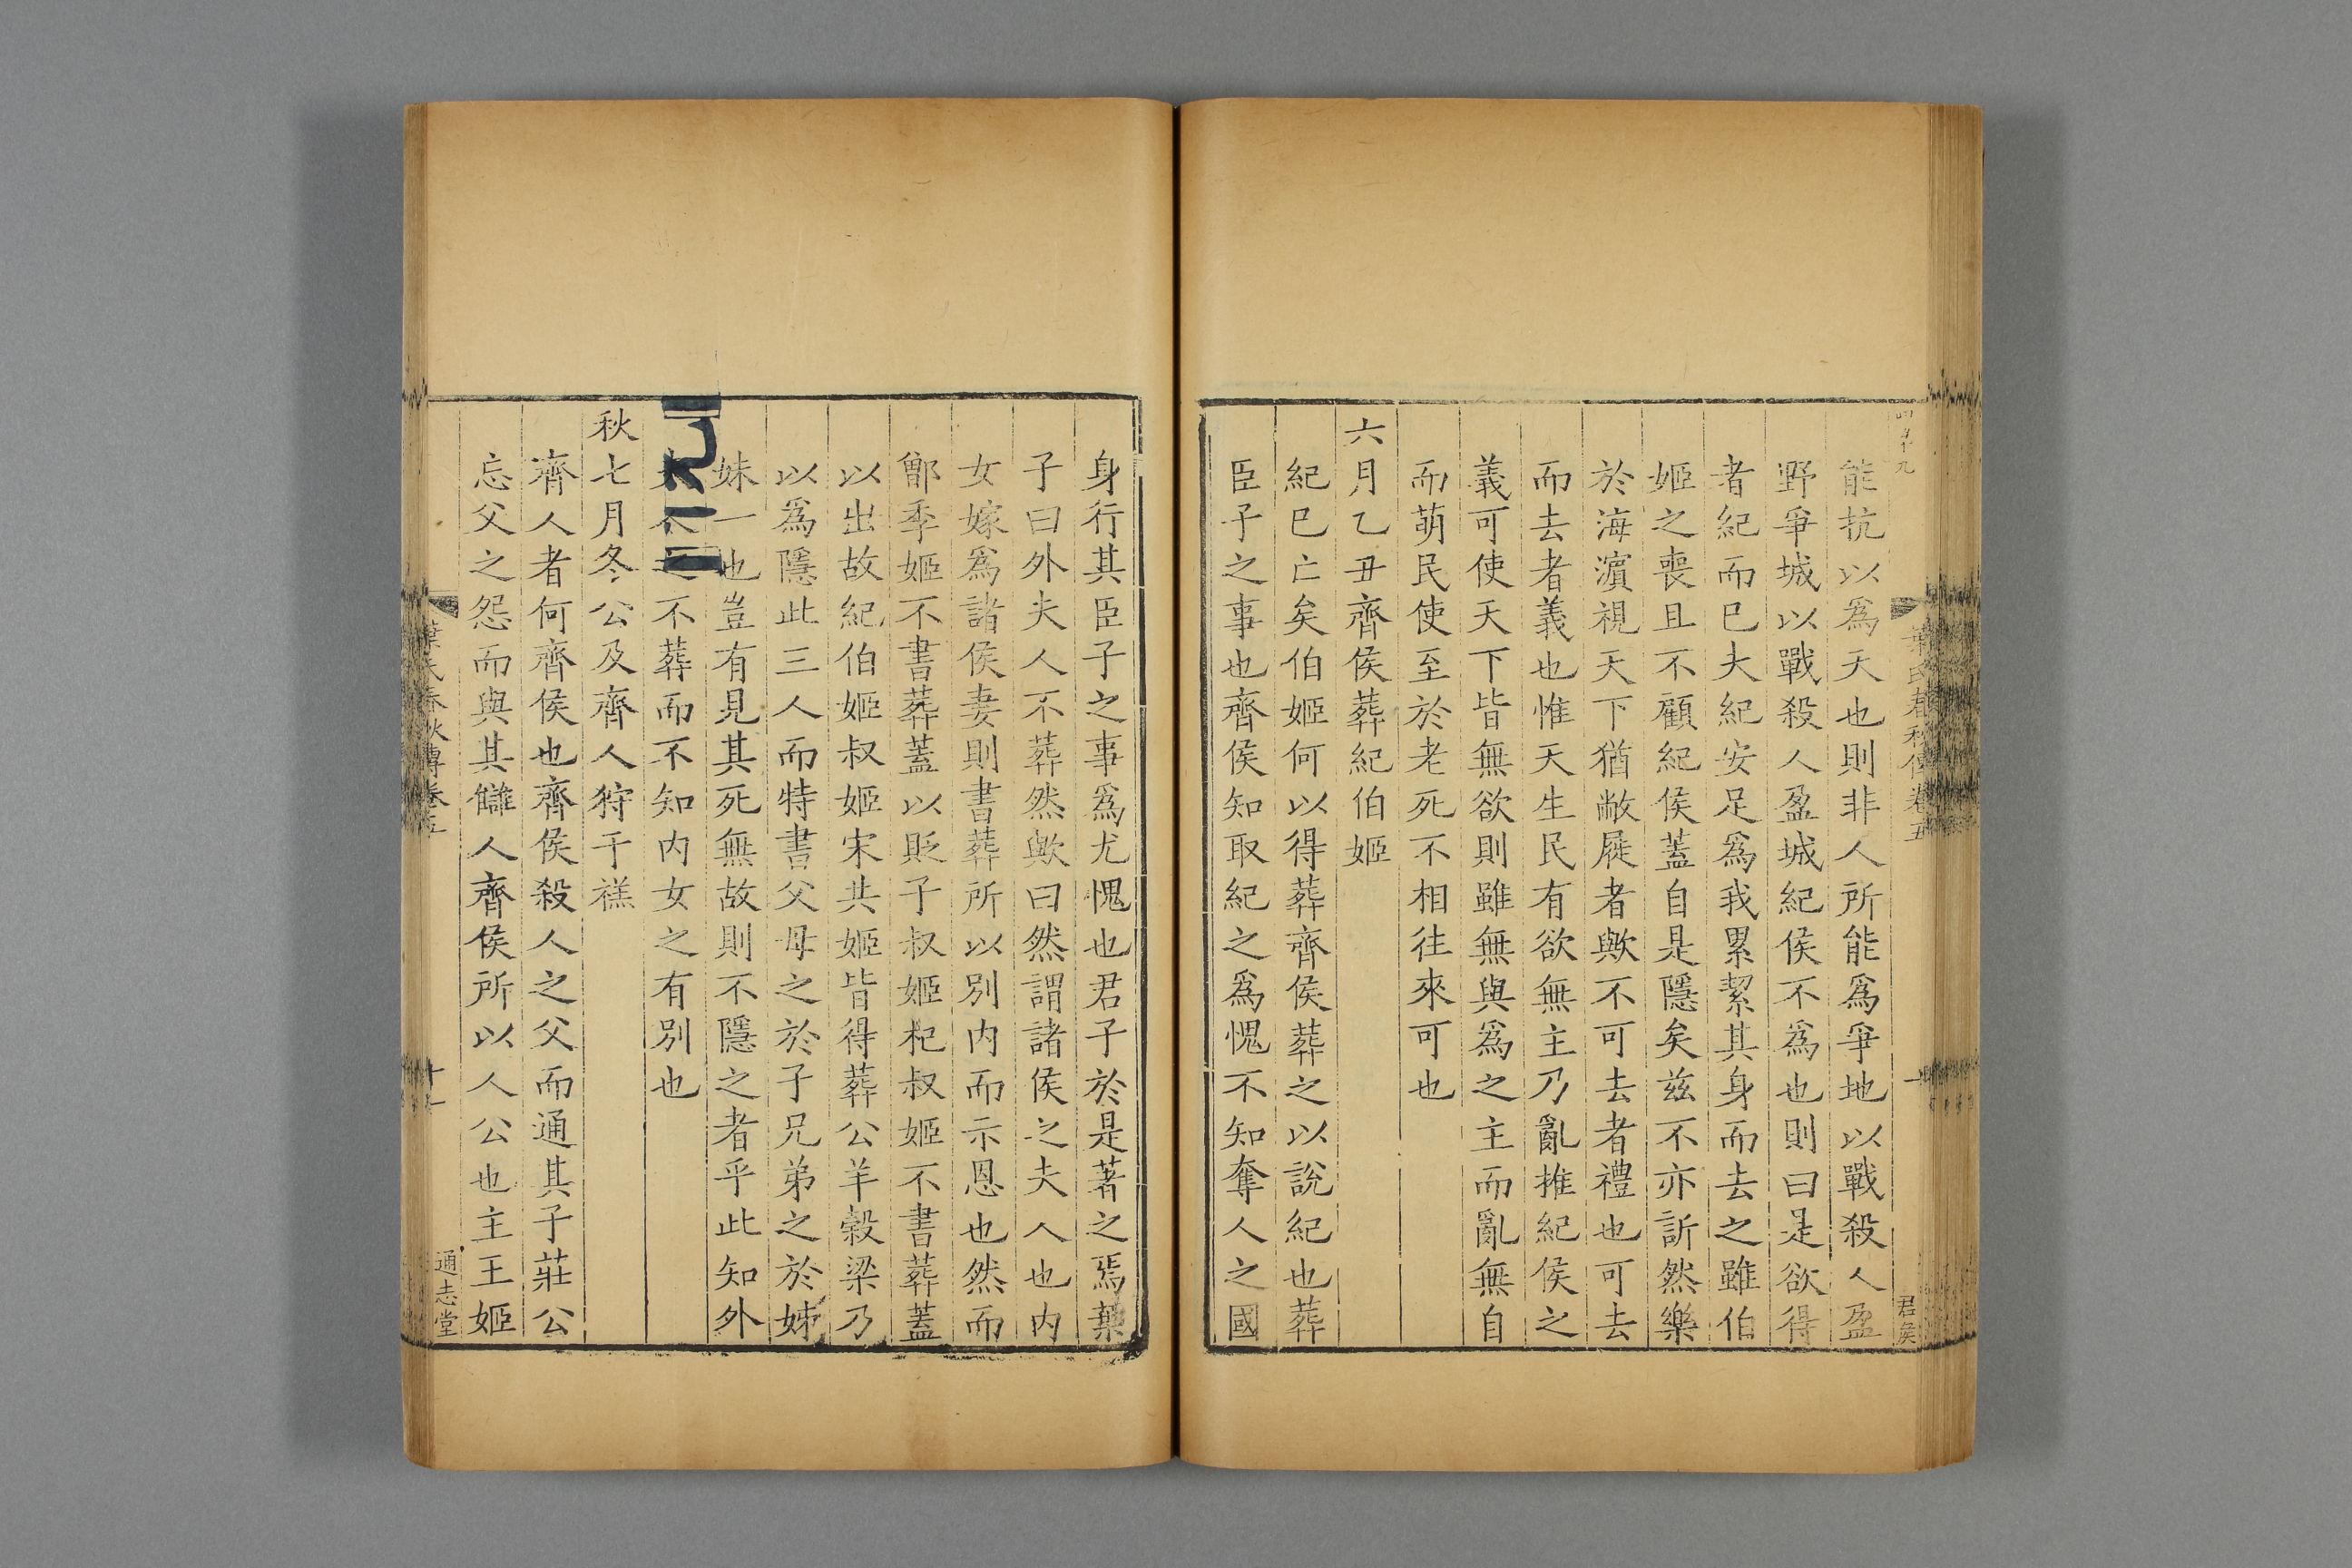 能抗以爲天也則非人所能爲爭地以戰殺人盈
野爭城以戰殺人盈城紀侯不爲也則曰是欲得
者紀而已大紀安足爲我累絜其身而去之雖伯
姬之喪且不顧紀侯蓋自是隱矣兹不亦訢然樂
於海濵視天下猶敝屣者歟不可去者禮也可去
而去者義也惟天生民有欲無主乃亂推紀侯之
義可使天下皆無欲則雖無與爲之主而亂無自
而萌民使至於老死不相往來可也
六月乙丑齊侯葬紀伯姬
紀已亡矣伯姬何以得葬齊侯葬之以說紀也葬
臣子之事也齊侯知取紀之爲愧不知奪人之國
身行其臣子之事爲尤愧也君子於是著之焉葉
子曰外夫人不葬然歟曰然謂諸侯之夫人也内
女嫁爲諸侯妻則書葬所以別内而示恩也然而
鄫季姬不書葬蓋以貶子叔姬杞叔姬不書葬蓋
以出故紀伯姬叔姬宋共姬皆得葬公羊穀梁乃
以爲隱此三人而特書父母之於子兄弟之於姊
妹一也豈有見其死無故則不隱之者乎此知外
不葬而不知内女之有別也
秋七月冬公及齊人狩于禚
齊人者何齊侯也齊侯殺人之父而通其子莊公
忘父之怨而與其讎人齊侯所以人公也主王姬
葉氏春秋傳卷五
十一
通志堂
君矦